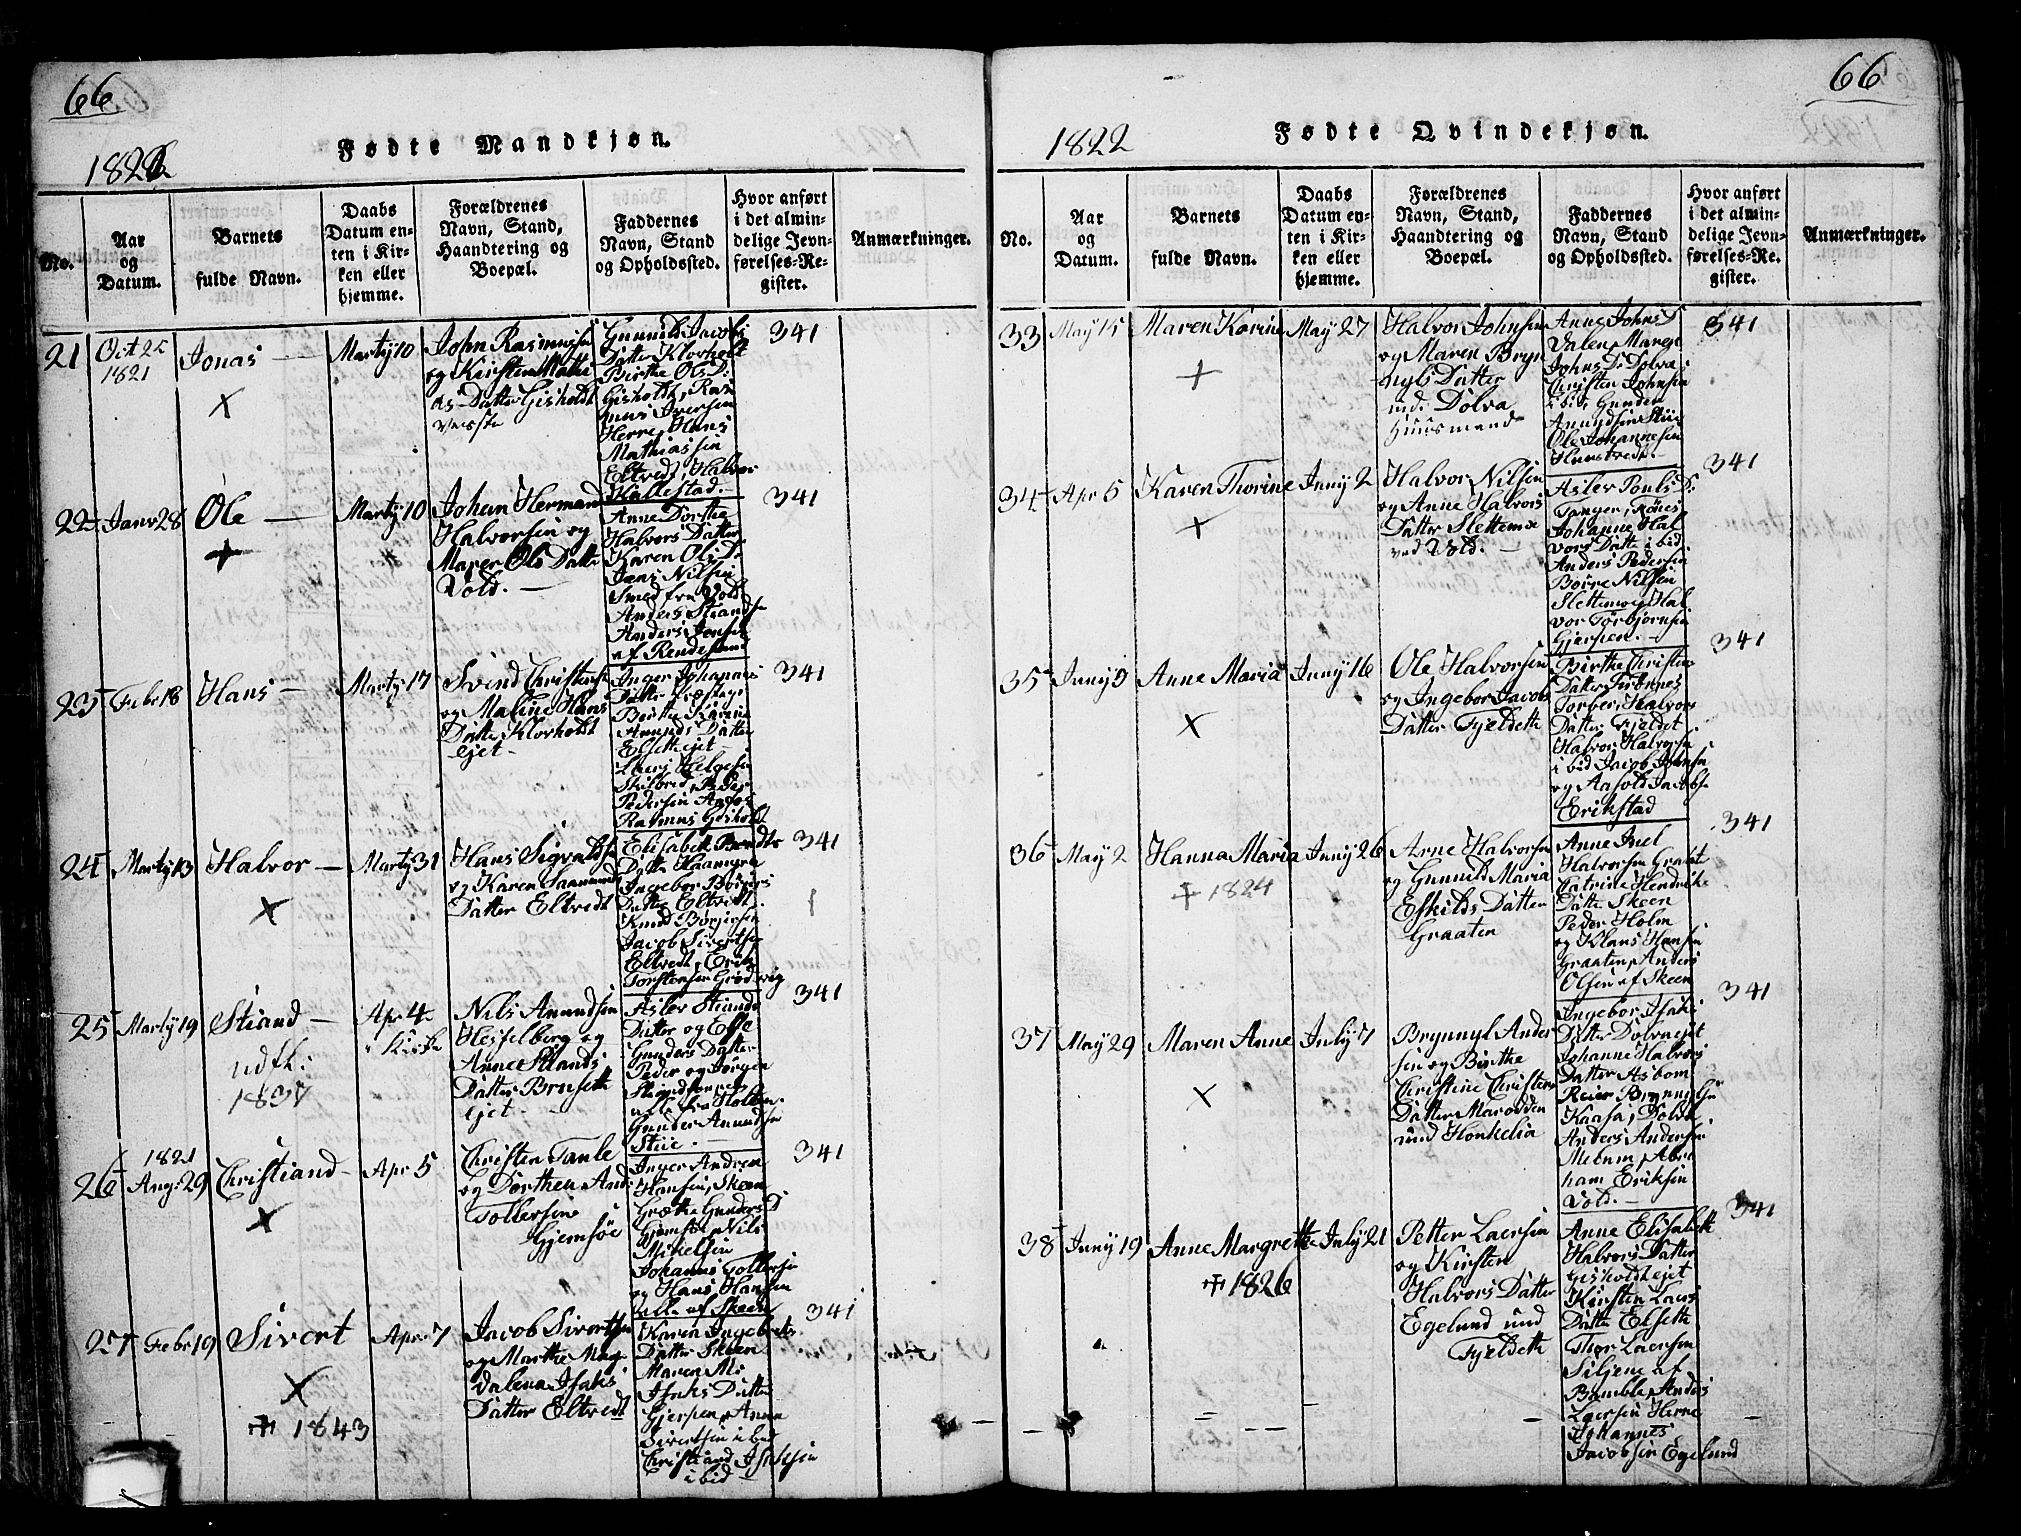 66
Fødte Mandkjøn.
1822
No.
Aar
og
Datum.
Barnets
fulde Navn.
Daabs
Datum en-
ten i Kir-
ken eller
hjemme.
Forældrenes
Navn, Stand,
Haandtering og
Boepæl.
Faddernes
Navn, Stand
og Opholdssted.
Hvor anført
i det almin-
delige Jevn-
førelses-Re-
gister.
Anmærkninger.
21
Oct 25
1821
Jonas —
Marty 10
John Rasmussen
og Kirsten
Datter Gisholdt
Gunnild Jacobs
Datter Klovholt
Birthe Ols D:
Gisholdt, Ras
mus Iversen
Herre, Hans
Mathiassen
Eltvedt, Halvor
Kallestad.
341
22
Janv 28
Ole —
Marty 10
Johan Herman
Halvorsen og
Maren Ols Datter
Vold. —
Anne Dorthe
Halvors Datter
Karen Ols D:
Jens Nilsen
Smed fra Vold
Anders
Anders Jensen
af
341
23
Febr 18
Hans —
Marty 17
Svend Christens
og Maline Hans
Datter Klovholdt
ejet —
Inger Johannis
Datter
Birthe Karine
Amunds Datter
Elseth ejet —
Lars Helgesen
Stilbred, Peder
Pedersen
Rasmus Gisholdt
341
24
Marty 13
Halvor —
Marty 31
Hans Sigvalds
og Karen
Datter Eltvedt
Elisabeth Bendts
Datter
Ingebor Børjers
Datter Eltvedt.
Knud Børjesen
Jacob Sivertsen
Eltvedt, Erik
Torstensen Grødvig
341
25
Marty 19
Stiand —
udfl:
1837
Apr 4
i Kirke
Nils Amundsen
Hesselberg og
Anne Stiands
Datter Bruseth
ejet. —
Asler Stiands
Datter og Else
Gunders Datter
Peder og Jørgen
alle fra Holten.
Gunder Amundsen
Stiie. —
341
26
1821
Aug: 29
Christiand —
Apr 5
Christen Tanle
og Dorthea And:
Tollersen
Gjemsøe
Inger Andrea
Hansen, Skeen
Grethe Gunders D
Gjemsøe, Nils
Mikelsen
Johannes Tollersen
og Hans Hansen
alle af Skeen
341
27
Febr 19
Sivert
1843
Apr 7
Jacob Sivertsen
og Marthe Mag
dalena Isaks
Datter Eltvedt
Karen Ingebrets
Datter Skeen
Maren M:
Isaks Datter
Gjerpen, Anna
Sivertsen ibid
Christiand Isaksen
ibid
341
66
1822
Fødte Qvindekjøn.
No.
Aar
og
Datum.
Barnets
fulde Navn.
Daabs
Datum en-
ten i Kir-
ken eller
hjemme.
Forældrenes
Navn, Stand,
Haandtering og
Boepæl.
Faddernes
Navn, Stand
og Opholdssted.
Hvor anført
i det almin-
delige Jevn-
førelses-Re-
gister.
Anmærkninger.
33
May 15
Maren Karine
May 27
Halvor Johnsen
og Maren Bryn
nyls Datter
und. Dolva
Huusmand
Anne Johns D:
Valen, Maren
Johns D: Dolva
Christen Johnsen
ibid, Gunder
Amundsen Stiie
Ole Johannesen
341
34
Apr 5
Karen Thorine
Juny 2
Halvor Nilsen
og Anne Halvors
Datter Slettemoe
ved Vold. —
Asler Pouls D:
Johanne Hal
vors Datte ibid.
Anders Pedersen
Børre Nilsen
Slettemoe, Hal
vor Torbjørnsen
Gjerpen. —
341
35
Juny 5
Anne Maria
Juny 16
Ole Halvorsen
og Ingebor Jacobs
Datter Fjeldeth
Birthe Christens
Datter
Torber Halvors
Datter Fjeldet
Halvor Halvorsen
ibid Jacob Johnsen
og Aasold Jacobs
Erikstad
341
36
May 2
Hanna Maria
1824
Juny 26
Arne Halvorsen
og Gunnild Maria
Eskilds Datter
Graaten
Anne Juel
Halvorsen Graat
Catrine Hendrik
Datte Skeen
Peder Holm
og Klaus Hansen
Graaten, Anders
Olsen af Skeen
341
37
May 29
Maren Anne
July 7
Brynnyl Ander
sen og Birthe
Christine Christens
Datter Marodden
und Honkelia
Ingebor Isaks
Datter Dolva ejet
Johanne Halvors
Datter Asbom
Reier Brynnylsen
Kaasa, Dolva
Anders Andersen
Melum, Abra
ham Eriksen
Vold. —
341
38
Juny 19
Anne Margrethe
1826
July 21
Petter Laersen
og Kirsten
Halvors Datter
Egelund und
Fjeldeth
Anne Elisabeth
Halvors Datter
Gisholdt ejet
Kirsten Laers
Datte Elseth
Thor Laersen
Siljene af
Bamble, Anders
Laersen Herre
Johannes
Jacobsen Egelund
341